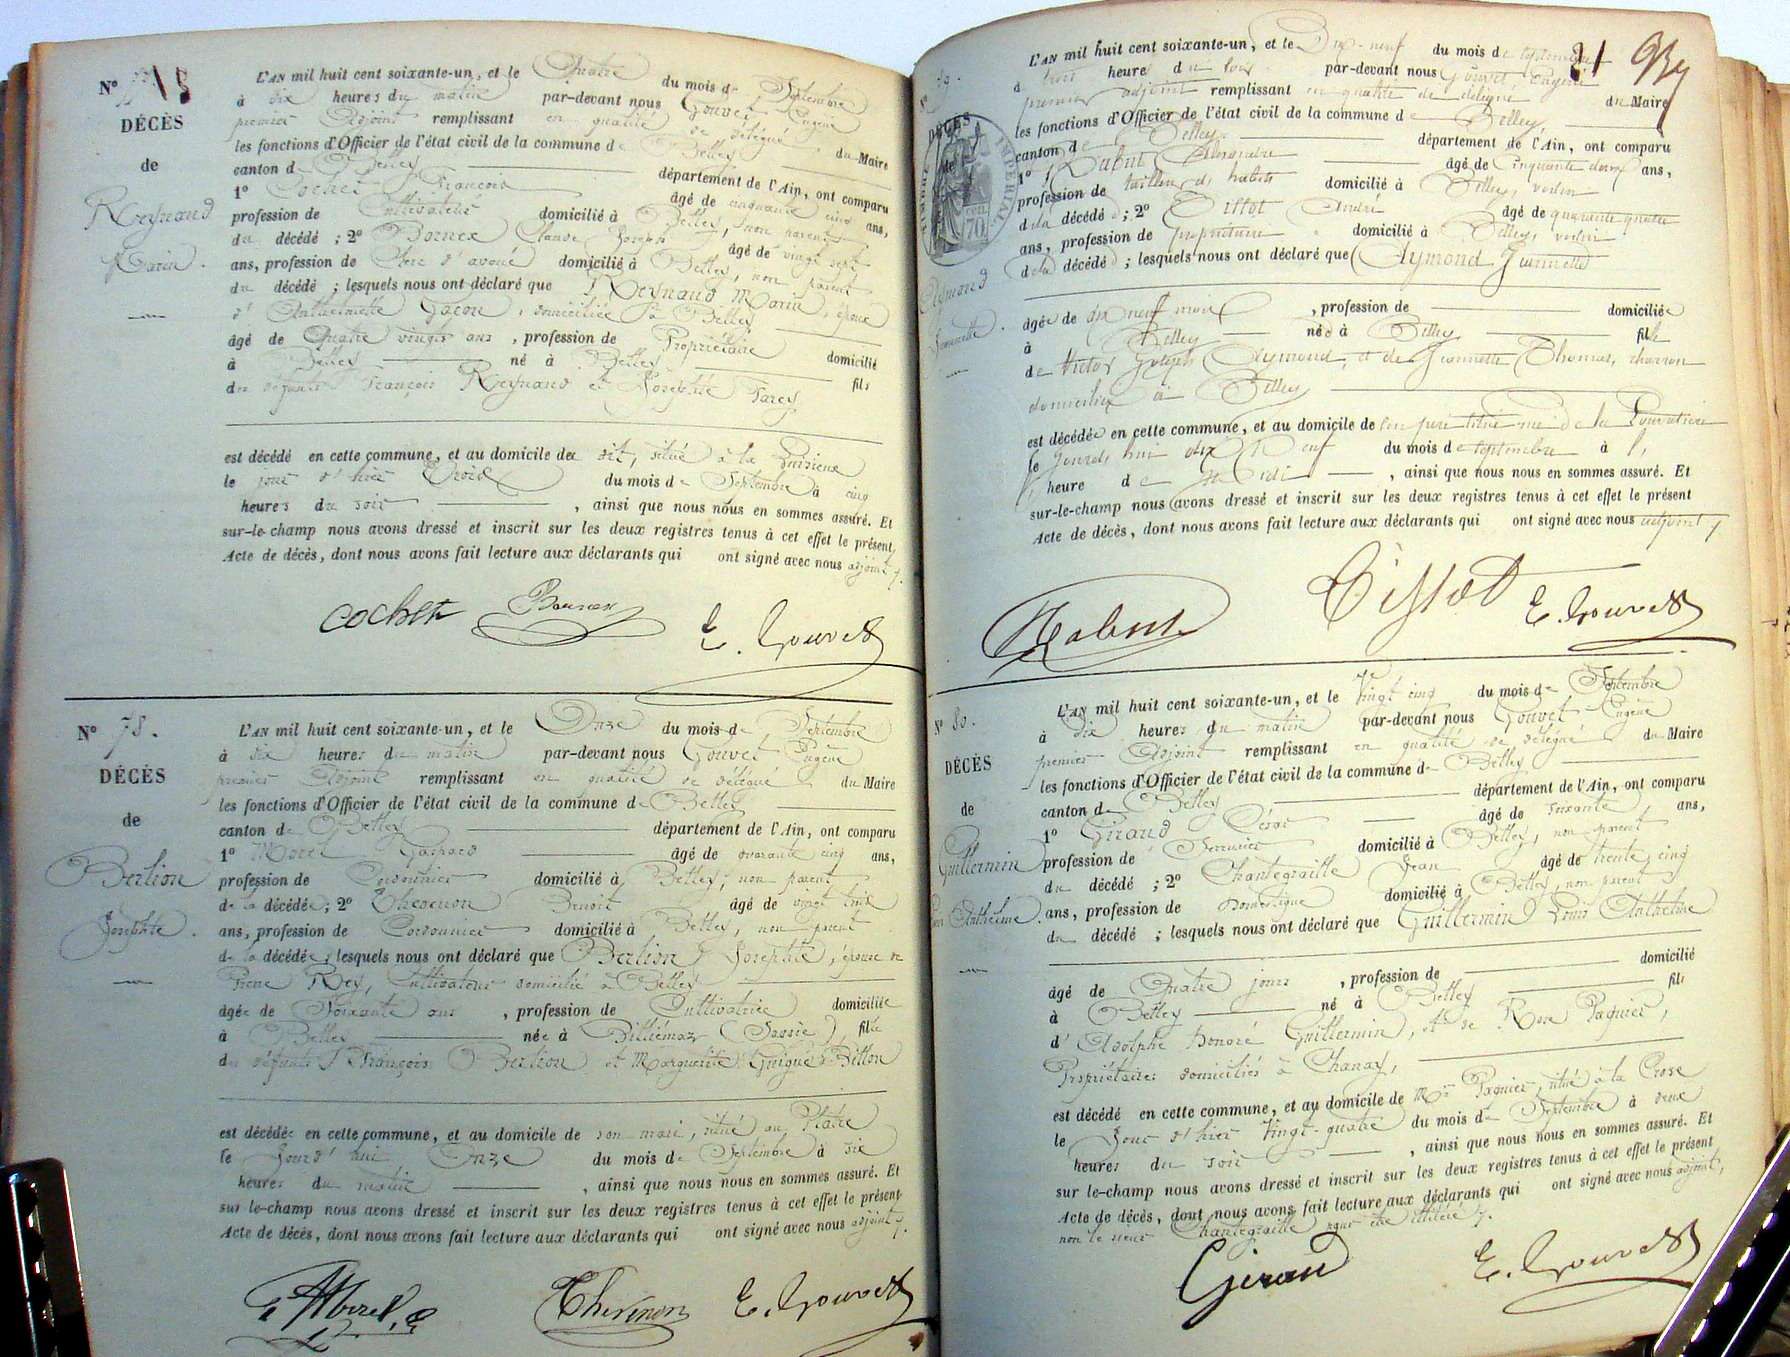 Nº
DÉCÈS
de
Reynaud
Marin.
L'AN mil huit cent soixante-un, et le Quatre du mois de Septembre
à dix heures du matin par-devant nous Gouvet Eugène
premier Adjoint remplissant en qualité de délégué du Maire
les fonctions d'Officier de l'état civil de la commune de Belley
canton de Belley département de l'Ain, ont comparu
1º Cochet François âgé de cinquante cinq ans,
profession de Cultivateur domicilié à Belley, non parent
du décédé ; 2º Bornex Claude Joseph âgé de vingt sept
ans, profession de Clerc d'avoué domicilié à Belley, non parent
du décédé ; lesquels nous ont déclaré que Reynaud Marin, époux
d'Anthelmette Gacon, domiciliée à Belley
âgé de Quatre vingts ans, profession de Propriétaire domicilié
à Belley né à Belley fils
des défunts François Reynaud et Josephte Farcy
est décédé en cette commune, et au domicile du dit, situé à la
le jour d'hier Trois du mois de Septembre à cinq
heures du soir, ainsi que nous nous en sommes assuré. Et
sur-le-champ nous avons dressé et inscrit sur les deux registres tenus à cet effet le présent
Acte de décès, dont nous avons fait lecture aux déclarants qui ont signé avec nous adjoint.
Cochet Bornex E. Gouvet
Nº 78.
DÉCÈS
de
Berlion
Josephte.
L'AN mil huit cent soixante-un, et le Onze du mois de Septembre
à dix heures du matin par-devant nous Gouvet Eugène
premier Adjoint remplissant en qualité de délégué du Maire
les fonctions d'Officier de l'état civil de la commune de Belley
canton de Belley département de l'Ain, ont comparu
1º Morel Gaspard âgé de quarante cinq ans,
profession de Cordonnier domicilié à Belley, non parent
de la décédée ; 2º Thevenon Benoit âgé de vingt
ans, profession de Cordonnier domicilié à Belley, non parent
de la décédée ; lesquels nous ont déclaré que Berlion Josephte, épouse de
Rey, Cultivateur domicilié à Belley
âgée de Soixante ans, profession de Cultivatrice domiciliée
à Belley née à Billiémaz (Savoie) fille
des défunts François Berlion et Marguerite Guigue Billon
est décédée en cette commune, et au domicile de son mari, situé au Platre
le Jourd'hui Onze du mois de Septembre à six
heures du matin, ainsi que nous nous en sommes assuré. Et
sur-le-champ nous avons dressé et inscrit sur les deux registres tenus à cet effet le présent
Acte de décès, dont nous avons fait lecture aux déclarants qui ont signé avec nous adjoint.
Morel Thevenon E. Gouvet
DÉCÈS
de
TIMBRE IMPÉRIAL
70
Aymond
Jeannette.
L'AN mil huit cent soixante-un, et le Dix-neuf du mois de septembre
à trois heures du soir par-devant nous Gouvet Eugène
premier adjoint remplissant en qualité de délégué du Maire
les fonctions d'Officier de l'état civil de la commune de Belley
canton de Belley département de l'Ain, ont comparu
1º Rabut Alexandre âgé de cinquante deux ans,
profession de tailleur d'habits domicilié à Belley, voisin
de la décédée ; 2º Tissot André âgé de quarante quatre
ans, profession de propriétaire domicilié à Belley, voisin
de la décédée ; lesquels nous ont déclaré que Aymond Jeannette
âgée de dix neuf mois, profession de domiciliée
à Belley née à Belley fille
de Victor Joseph Aymond et de Jeannette Thomas, charron
domiciliés à Belley
est décédée en cette commune, et au domicile de son père situé
le Jourd'hui dix Neuf du mois de septembre à
heure de midi, ainsi que nous nous en sommes assuré. Et
sur-le-champ nous avons dressé et inscrit sur les deux registres tenus à cet effet le présent
Acte de décès, dont nous avons fait lecture aux déclarants qui ont signé avec nous adjoint
Rabut Tissot E. Gouvet
Nº 80.
DÉCÈS
de
Guillermin
Anthelme.
L'AN mil huit cent soixante-un, et le Vingt cinq du mois de Septembre
à Dix heures du matin par-devant nous Gouvet Eugène
premier Adjoint remplissant en qualité de délégué du Maire
les fonctions d'Officier de l'état civil de la commune de Belley
canton de Belley département de l'Ain, ont comparu
1º Giraud César âgé de soixante ans,
profession de Serrurier domicilié à Belley, non parent
du décédé ; 2º Chantegraille Jean âgé de trente cinq
ans, profession de Domestique domicilié à Belley, non parent
du décédé ; lesquels nous ont déclaré que Guillermin Louis Anthelme
âgé de Quatre jours, profession de domicilié
à Belley né à Belley fils
d'Adolphe Honoré Guillermin, et de Rose Pagnier,
Propriétaires domiciliés à Chanay,
est décédé en cette commune, et au domicile de Pagnier, situé à la Croze
le Jour d'hier Vingt-quatre du mois de Septembre à deux
heures du soir, ainsi que nous nous en sommes assuré. Et
sur le-champ nous avons dressé et inscrit sur les deux registres tenus à cet effet le présent
Acte de décès, dont nous avons fait lecture aux déclarants qui ont signé avec nous adjoint,
non le sieur Chantegraille pour être illitéré.
Giraud E. Gouvet